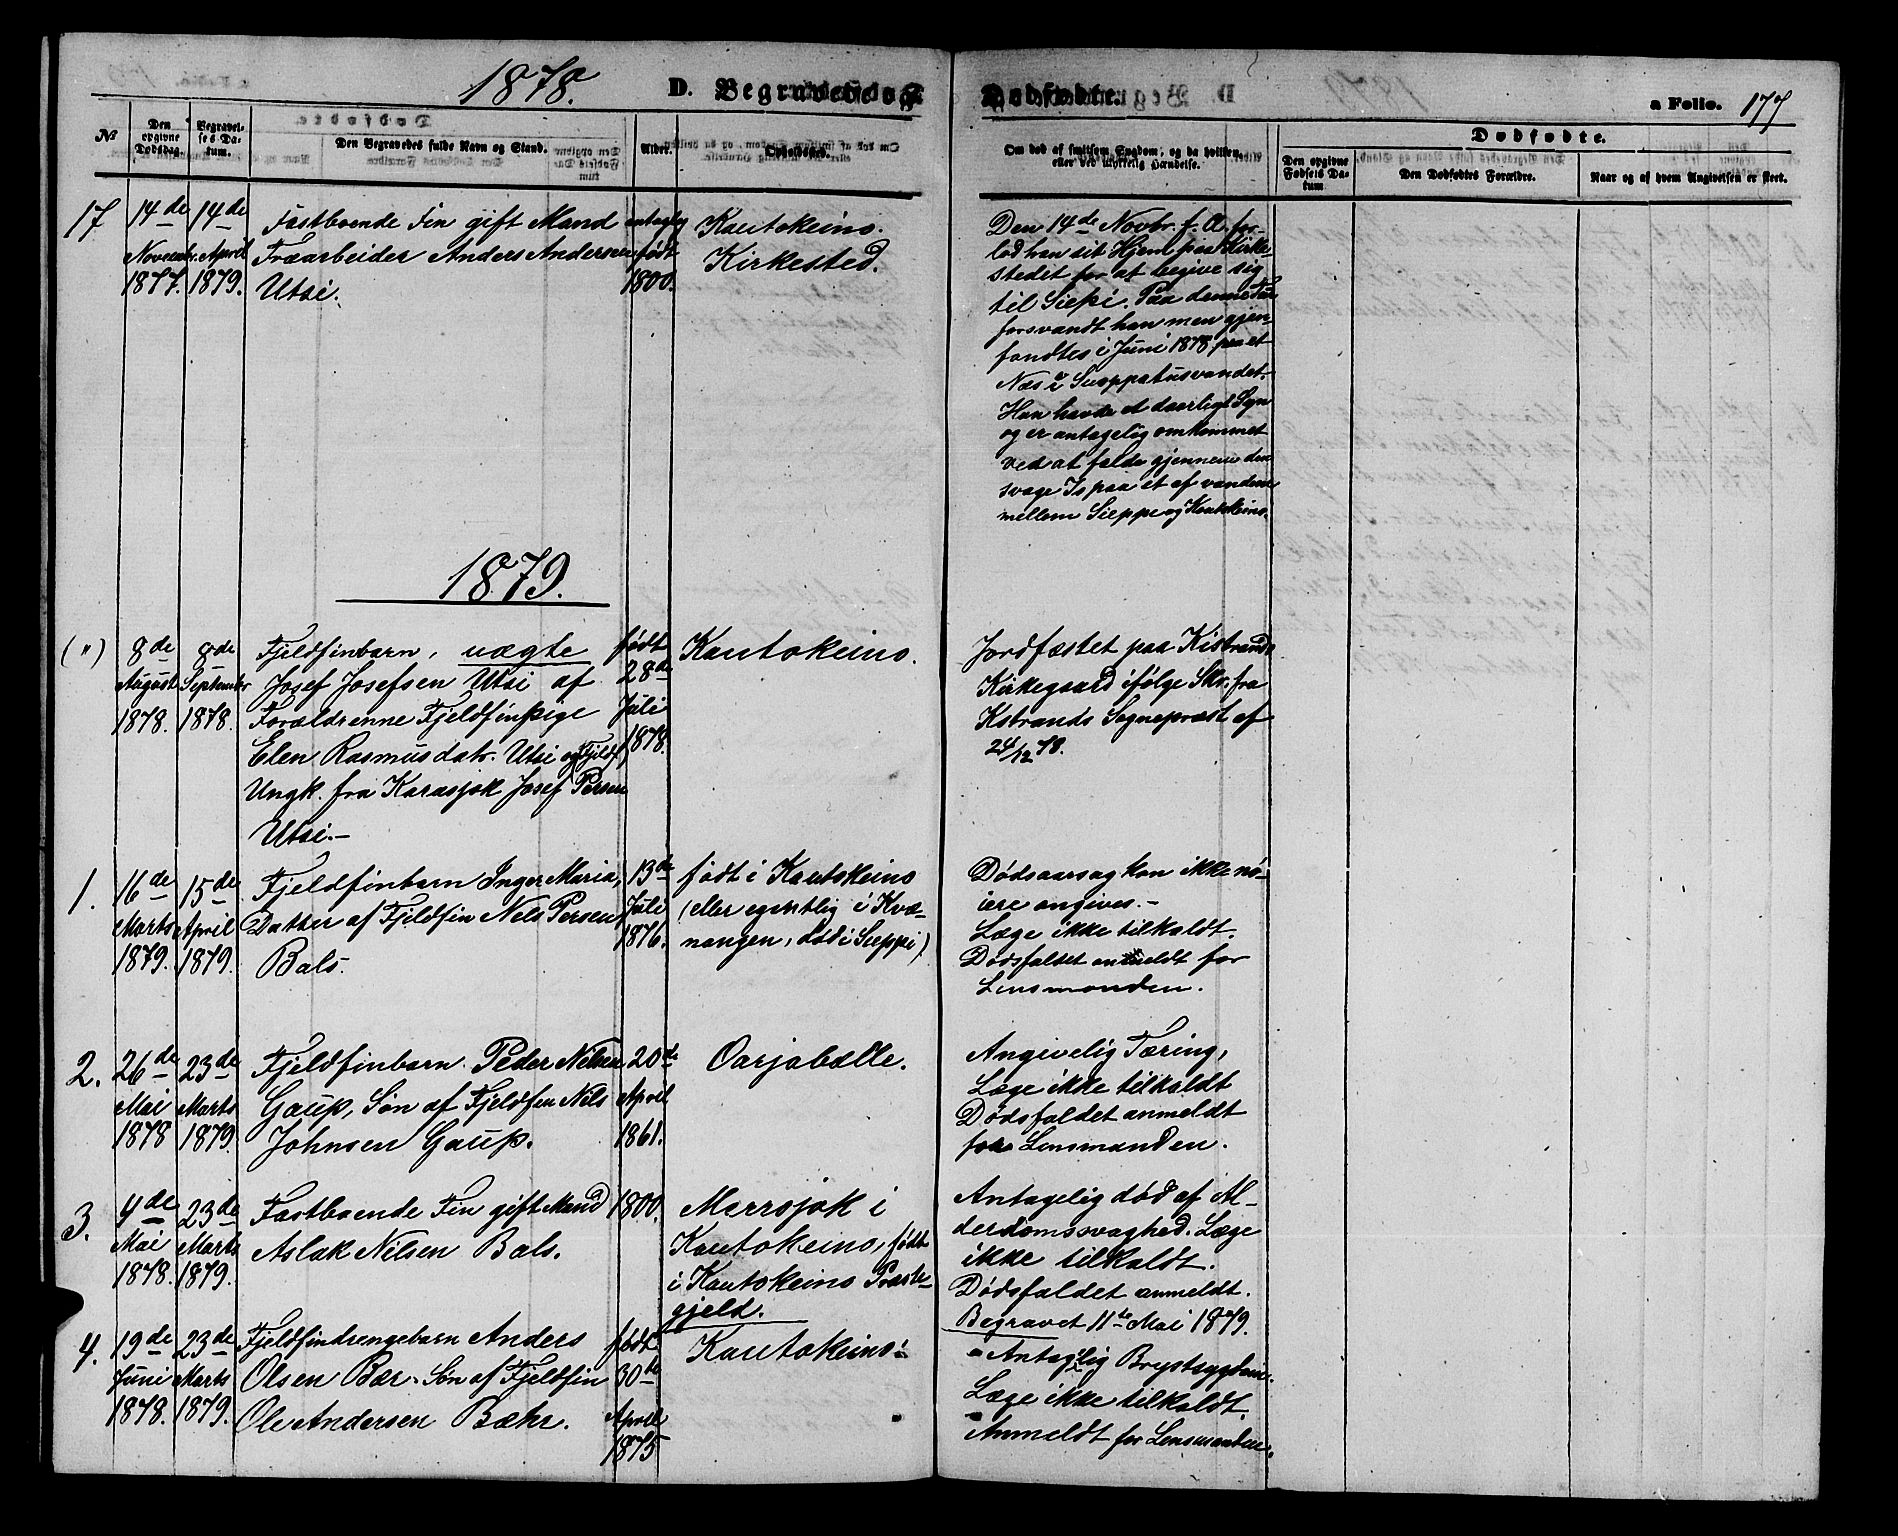 1878.
D. Begravede og Dødfødte.
a Folio. 177
№
Den opgivne Dødsdag.
Begravelses Datum.
Den Begravedes fulde Navn og Stand.
Alder.
Opholdssted.
Om død af smitsom Sygdom, og da hvilken, eller ved ulykkelig Hændelse.
Dødfødte.
Den opgivne Fødsels Datum
Den Dødfødtes Forældre.
Naar og af hvem Angivelsen er skeet.
17
14de
Novembr.
1877.
14de
April
1879.
Fastboende Fin gift Mand
Træarbeider Anders Andersen
Utsi.
antagelig
født
1800.
Kautokeino.
Kirkested.
Den 14de Novbr. f. A. for-
lod han sit Hjem paa Kirke-
stedet for at begive sig
til Siepi. Paa denne Tur
forsvandt han men gjen-
fandtes i Juni 1878 paa et
Næs i Suoppatusvandet.
Han havde et daarligt Syn
og er antagelig omkommet
ved at falde gjennem den
svage Is paa et af vandene
mellem Sieppe og Kautokeino.
1879.
(")
8de
August
1878.
8de
September
1878
Fjeldfinbarn, uægte
Josef Josefsen Utsi af
Forældrenne Fjeldfinpige
Elen Rasmusdatr. Utsi og Fjeldf.
Ungk. fra Karasjok Josef Persen
Utsi.-
født
28de
Juli
1878.
Kautokeino.
Jordfæstet paa Kistrands
Kirkegaard ifølge Skr. fra
Kstrands Sognepræst af
24/12 78.
1.
16de
Marts
1879.
15de
April
1879.
Fjeldfinbarn Inger Maria,
Datter af Fjeldfin Nils Persen
Bals.
13de
Juli
1876.
født i Kautokeino
(eller egentlig i Kvæ-
nangen, død i Sieppi)
Dødsaarsag kan ikke nø-
iere angives.-
Læge ikke tilkaldt.
Dødsfaldet anmeldt for
Lensmanden.
2.
26de
Mai
1878
23de
Marts
1879.
Fjeldfinbarn Peder Nilsen
Gaup, Søn af Fjeldfin Nils
Johnsen Gaup.
20de
April
1861.
Oarjabælle.
Angivelig Tæring,
Læge ikke tilkaldt
Dødsfaldet anmeldt
for Lensmanden.
3.
4de
Mai
1878.
23de
Marts
1879.
Fastboende Fin gift Mand
Aslak Nilsen Bals.
1800.
Marrsjok i
Kautokeino, født
i Kautokeino Præste-
gjeld.
Antagelig død af Al-
derdomssvaghed. Læge
ikke tilkaldt.
Dødsfaldet anmeldt.
Begravet 11te Mai 1879.
4.
19de
Juni
1878.
23de
Marts
1879.
Fjeldfindrengebarn Anders
Olsen Bær. Søn af Fjeldfin
Ole Andersen Bæhr.
født
30te
April
1875
Kautokeino.
Antagelig Brystsygdom.
Læge ikke tilkaldt.
Anmeldt for Lensmanden.